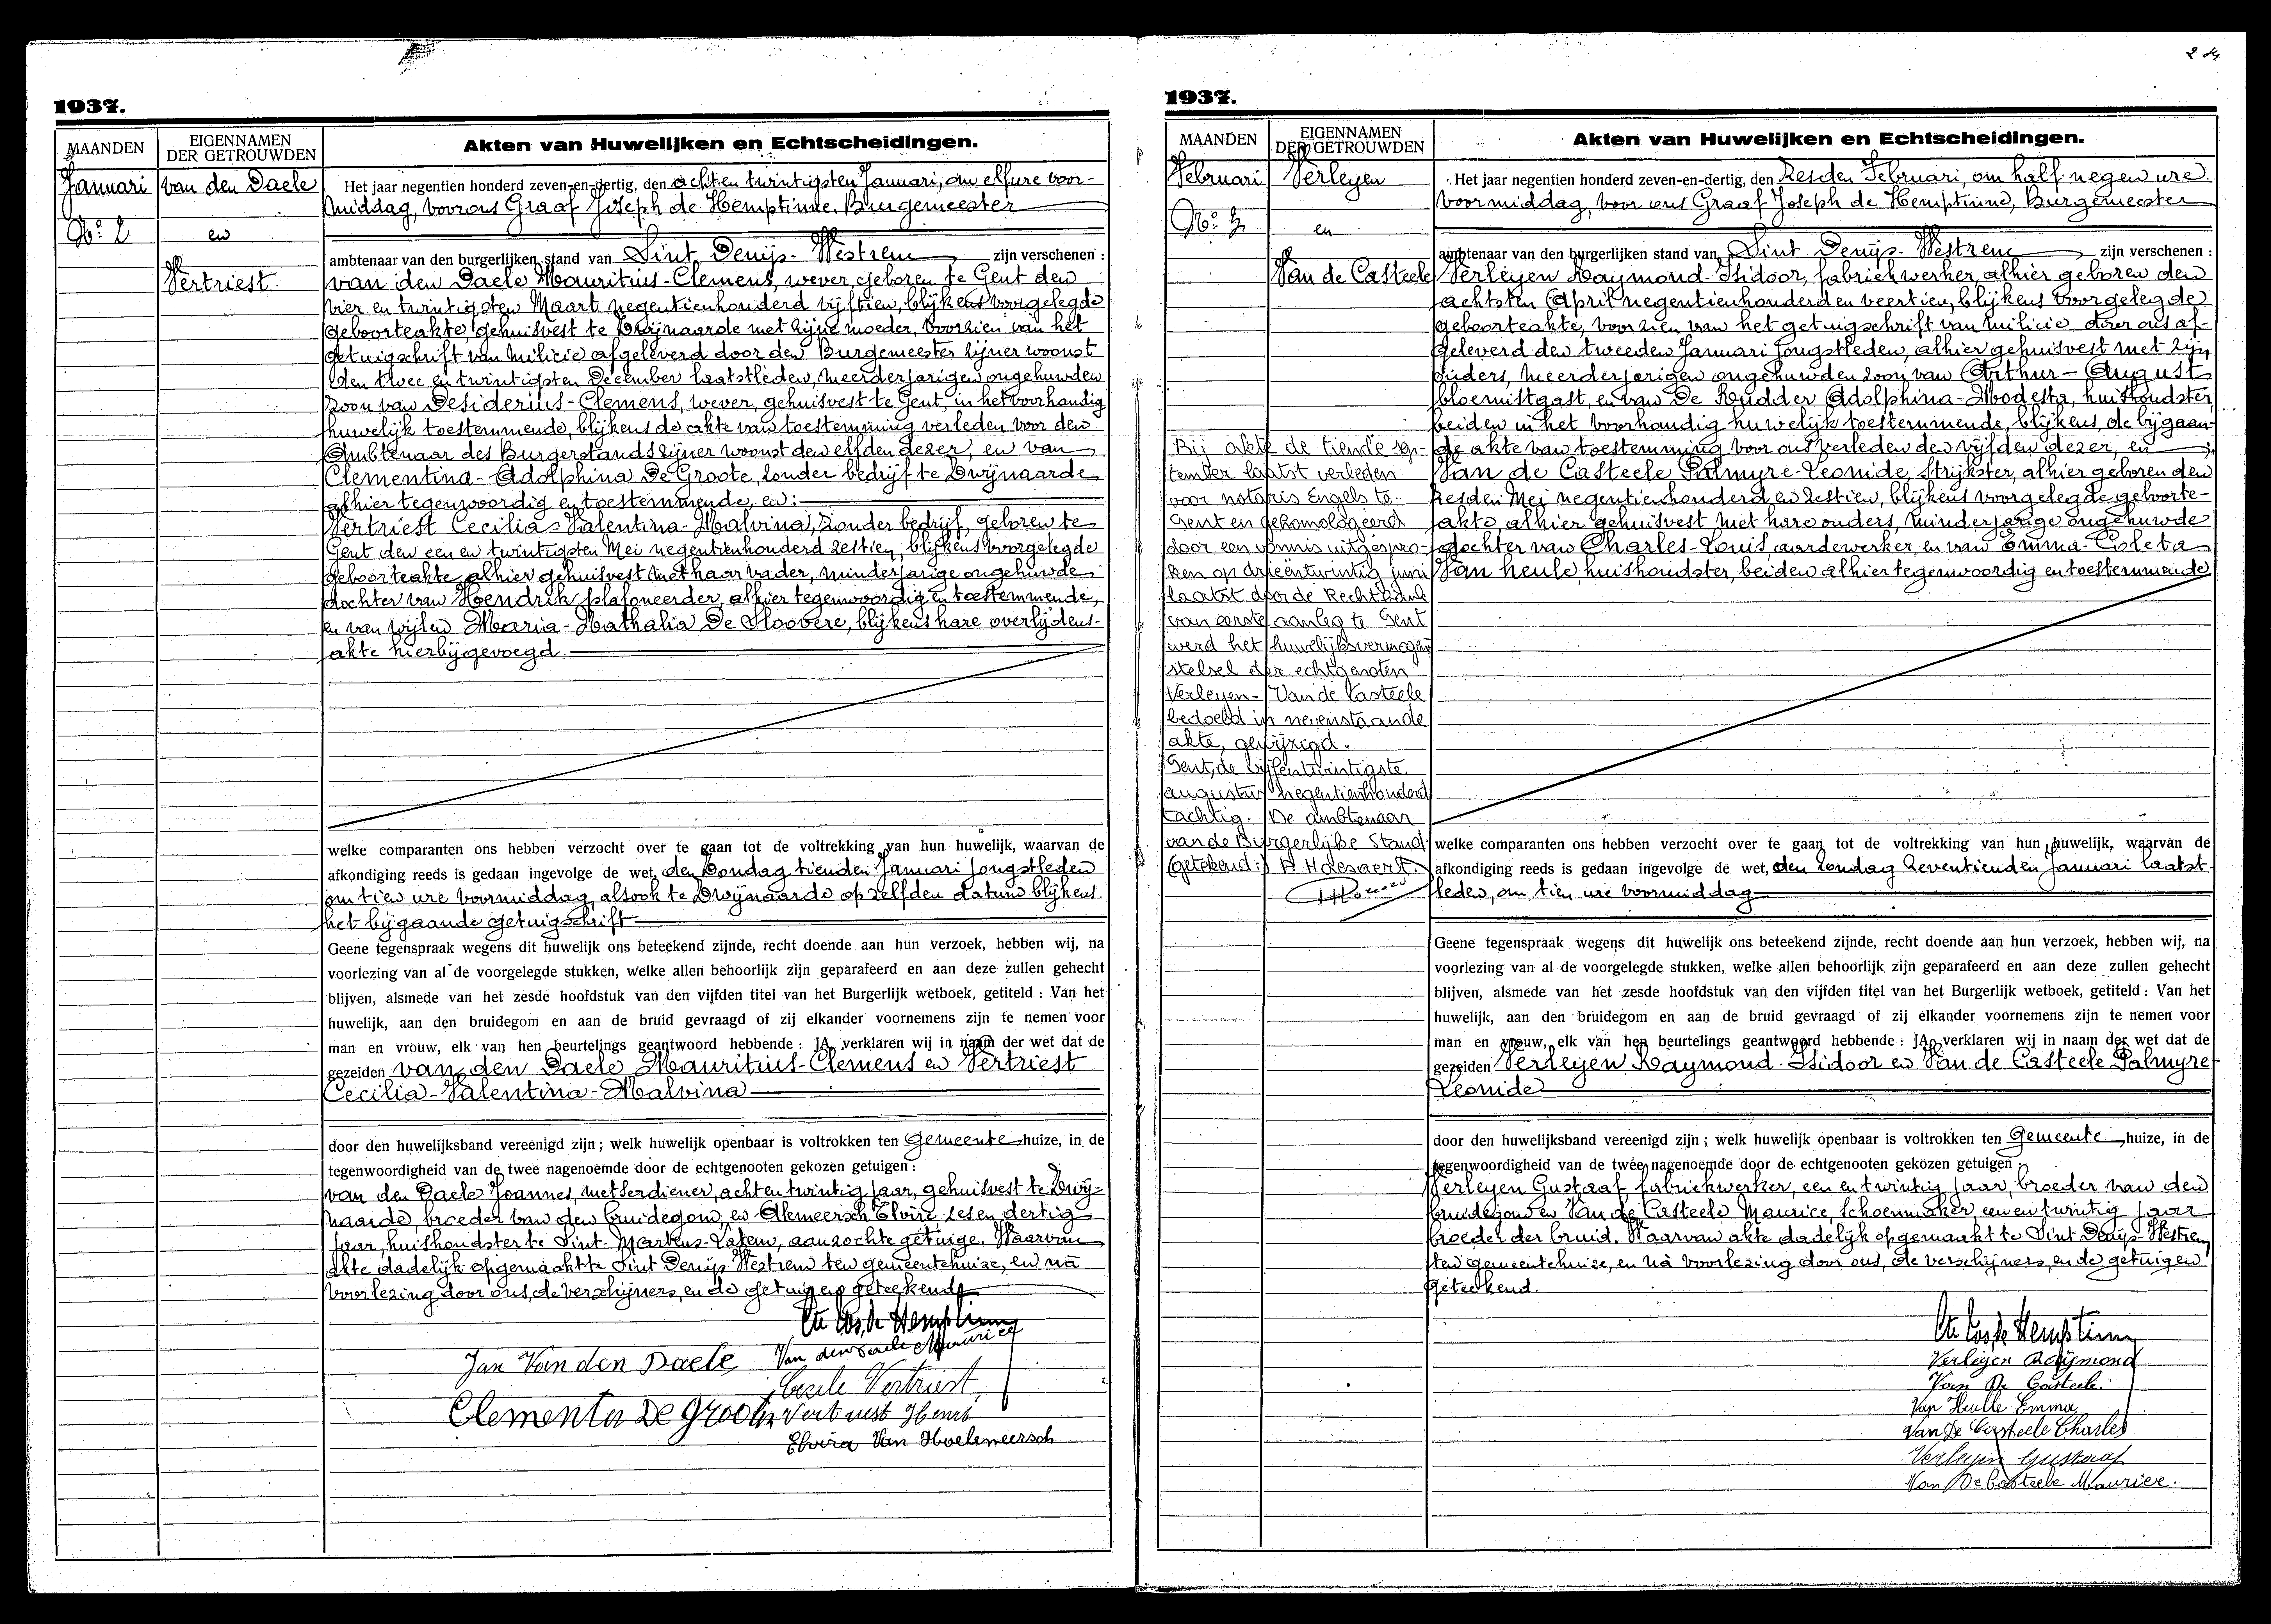 1937.
MAANDEN
EIGENNAMEN
DER GETROUWDEN
Akten van Huwelijken en Echtscheidingen.
Januari
No: 2
van den Daele
en
Vertriest.
Het jaar negentien honderd zeven-en-dertig, den achtentwintigsten Januari, om elf ure voor-
middag, voor ons Graaf Joseph de Hemptinne, Burgemeester
ambtenaar van den burgerlijken stand van Sint Denijs-Westrem zijn verschenen :
van den Daele Mauritius-Clemens, wever, geboren te Gent den
vier en twintigsten Maart negentienhonderd vijftien, blijkens voorgelegde
geboorteakte, gehuisvest te Zwijnaarde met zijne moeder, voorzien van het
getuigschrift van milicie afgeleverd door den Burgemeester zijner woonst
den twee en twintigsten December laatstleden, meerderjarigen ongehuwden
zoon van Desiderius-Clemens, wever, gehuisvest te Gent, in het voorhandig
huwelijk toestemmende, blijkens de akte van toestemming verleden voor den
Ambtenaar des Burgerstands zijner woonst den elfden dezer, en van
Clementina-Adolphina De Groote, zonder bedrijf te Zwijnaarde
alhier tegenwoordig en toestemmende, en:
Vertriest Cecilia-Valentina-Malvina, zonder bedrijf, geboren te
Gent den een en twintigsten Mei negentienhonderd zestien, blijkens voorgelegde
geboorteakte, alhier gehuisvest met haar vader, minderjarige ongehuwde
dochter van Hendrik plafoneerder, alhier tegenwoordig en toestemmende,
en van wijlen Maria-Nathalia De Sloovere, blijkens hare overlijdens-
akte hierbijgevoegd.
welke comparanten ons hebben verzocht over te gaan tot de voltrekking van hun huwelijk, waarvan de
afkondiging reeds is gedaan ingevolge de wet, den Zondag tienden Januari jongstleden
om tien ure voormiddag, alsook te Zwijnaarde op zelfden datum blijkens
het bijgaande getuigschrift
Geene tegenspraak wegens dit huwelijk ons beteekend zijnde, recht doende aan hun verzoek, hebben wij, na
voorlezing van al de voorgelegde stukken, welke allen behoorlijk zijn geparafeerd en aan deze zullen gehecht
blijven, alsmede van het zesde hoofdstuk van den vijfden titel van het Burgerlijk wetboek, getiteld : Van het
huwelijk, aan den bruidegom en aan de bruid gevraagd of zij elkander voornemens zijn te nemen voor
man en vrouw, elk van hen beurtelings geantwoord hebbende : JA, verklaren wij in naam der wet dat de
gezeiden van den Daele Mauritius-Clemens en Vertriest
Cecilia-Valentina-Malvina
door den huwelijksband vereenigd zijn ; welk huwelijk openbaar is voltrokken ten Gemeente huize, in de
tegenwoordigheid van de twee nagenoemde door de echtgenooten gekozen getuigen :
van den Daele Joannes, metserdiener, achtentwintig jaar, gehuisvest te Zwij-
naarde, broeder van den bruidegom, en Alemeersch Elvire, zes en dertig
jaar, huishoudster te Sint-Martens-Latem, aanzochte getuige. Waarvan
akte dadelijk opgemaakt te Sint Denijs Westrem ten gemeentehuize, en nà
voorlezing door ons, de verschijners, en de getuigen geteekend.
Cte Jos. de Hemptinne
Jan Van den Daele Van den Daele Maurice
Cecile Vertriest
Clementa De Groote Vertriest Henri
Elvira Van Hoelemeersch
2
1937.
MAANDEN
EIGENNAMEN
DER GETROUWDEN
Akten van Huwelijken en Echtscheidingen.
Februari
No: 3
Verleyen
en
Van de Casteele
Bij akte de tiende sep-
tember laatst verleden
voor notaris Engels te
Gent en gehomologeerd
door een vonnis uitgespro-
ken op drieëntwintig juni
laatst door de Rechtbank
van eerste aanleg te Gent
werd het huwelijksvermogens
stelsel der echtgenoten
Verleyen - Van de Casteele
bedoeld in nevenstaande
akte, gewijzigd.
Gent, de vijfentwintigste
augustus negentienhonderd
tachtig. De ambtenaar
van de Burgerlijke Stand.
(getekend:)
Het jaar negentien honderd zeven-en-dertig, den Zesden Februari, om half negen ure
voormiddag, voor ons Graaf Joseph de Hemptinne, Burgemeester
ambtenaar van den burgerlijken stand van Sint Denijs-Westrem zijn verschenen :
Verleyen Raymond-Isidoor, fabriekwerker, alhier geboren den
achtsten April negentienhonderd en veertien, blijkens voorgelegde
geboorteakte, voorzien van het getuigschrift van milicie door ons af-
geleverd den tweeden Januari jongstleden, alhier gehuisvest met zijn
ouders, meerderjarigen ongehuwden zoon van Arthur-August
bloemistgast, en van De Rudder Adolphina-Modesta, huishoudster,
beiden in het voorhandig huwelijk toestemmende, blijkens, de bijgaan-
de akte van toestemming voor ons verleden den vijfden dezer, en
Van de Casteele Palmyre-Leonide, Strijkster, alhier geboren den
Zesden Mei negentienhonderd en zestien, blijkens voorgelegde geboorte-
akte, alhier gehuisvest met hare ouders, minderjarige ongehuwde
dochter van Charles-Louis, aardewerker, en van Emma-Coleta
Van heule, huishoudster, beiden alhier tegenwoordig en toestemmende
welke comparanten ons hebben verzocht over te gaan tot de voltrekking van hun huwelijk, waarvan de
afkondiging reeds is gedaan ingevolge de wet, den Zondag Zeventienden Januari laatst-
leden, om tien ure voormiddag
Geene tegenspraak wegens dit huwelijk ons beteekend zijnde, recht doende aan hun verzoek, hebben wij, na
voorlezing van al de voorgelegde stukken, welke allen behoorlijk zijn geparafeerd en aan deze zullen gehecht
blijven, alsmede van het zesde hoofdstuk van den vijfden titel van het Burgerlijk wetboek, getiteld : Van het
huwelijk, aan den bruidegom en aan de bruid gevraagd of zij elkander voornemens zijn te nemen voor
man en vrouw, elk van hen beurtelings geantwoord hebbende : JA, verklaren wij in naam der wet dat de
gezeiden Verleyen Raymond-Isidoor en Van de Casteele Palmyre
Leonide
door den huwelijksband vereenigd zijn ; welk huwelijk openbaar is voltrokken ten Gemeente huize, in de
tegenwoordigheid van de twee nagenoemde door de echtgenooten gekozen getuigen :
Verleyen Gustaaf, fabriekwerker, een en twintig jaar, broeder van den
bruidegom en Van de Casteele Maurice, Schoenmaker, een en twintig jaar
broeder der bruid. Waarvan akte dadelijk opgemaakt te Sint Denijs-Westrem
ten gemeentehuize, en nà voorlezing door ons, de verschijners, en de getuigen
geteekend.
Cte Jos. de Hemptinne
Verleyen Raymond
Van De Casteele
Van Hulle Emma
Van De Casteele Charles
Verleyen Gustaaf
Van De Casteele Maurice.